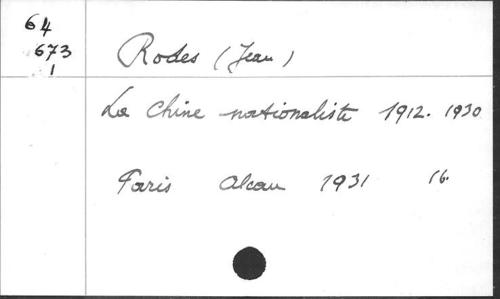 64
673
1
Rodes (Jean)
La Chine nationaliste 1912. 1930
Paris Alcan 1931 16.